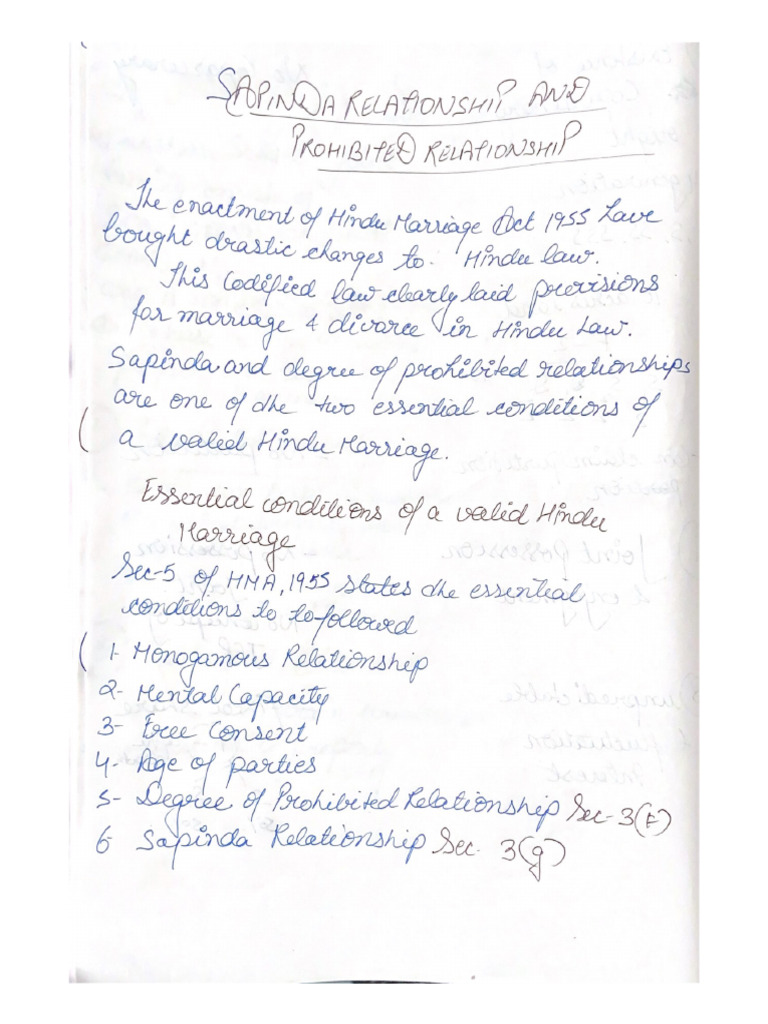 SAPINDA RELATIONSHIP AND
PROHIBITED RELATIONSHIP
The enactment of Hindu Marriage Act 1955 have
bought drastic changes to. Hindu law.
This Codified law clearly laid provisions
for marriage & divorce in Hindu Law.
Sapinda and degree of prohibited relationships
are one of the two essential conditions of
a valid Hindu Marriage.
Essential conditions of a valid Hindu
Marriage
Sec-5 of HMA, 1955 states the essential
conditions to to followed
1- Monogamous Relationship
2- Mental Capacity
3- Free Consent
4- Age of parties
5- Degree of Prohibited Relationship Sec-3(f)
6- Sapinda Relationship Sec. 3(g)